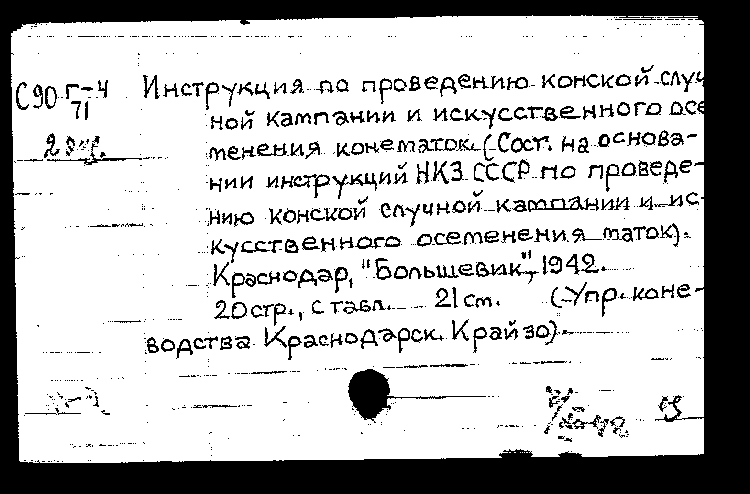 С90 г-4 Инструкция по проведению конской случ
71 ной кампании и искусственного осе
2 экз. менения конематок. (Сост. на основа-
нии инструкций НКЗ СССР по проведе-
нию конской случной кампании и ис-
кусственного осеменения маток).
Краснодар, "Большевик", 1942.
20 стр., с табл. 21 см. (Упр. коне-
водства Краснодарск. Крайзо).